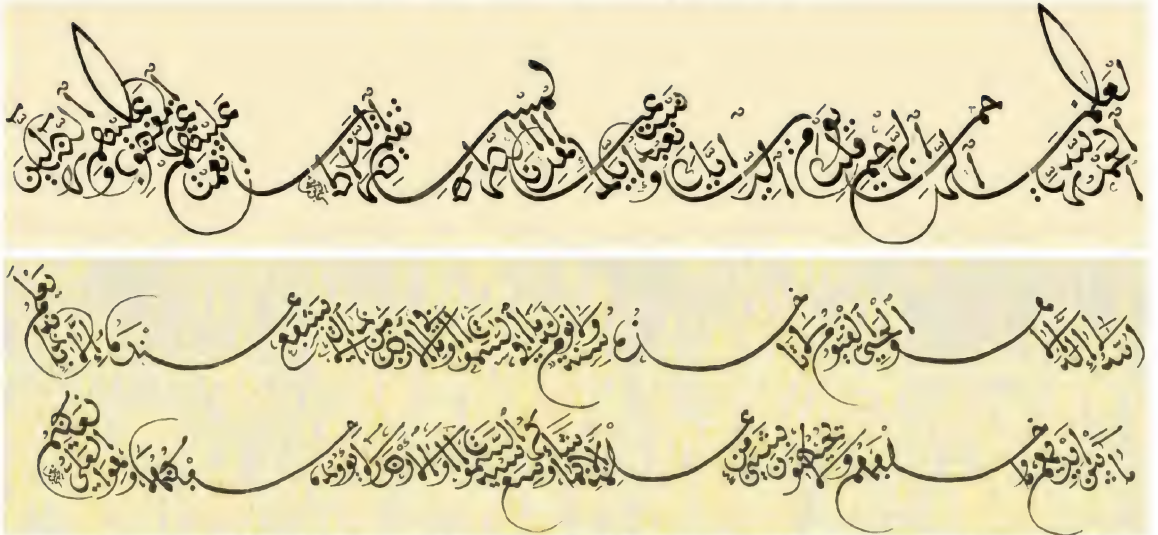 الحمد لله رب العالمين الرحمن الرحيم ملك يوم الدين إياك نعبد وإياك نستعين اهدنا الصراط المستقيم صراط الذين أنعمت عليهم غير المغضوب عليهم ولا الضالين
الله لا إله إلا هو الحي القيوم لا تأخذه سنة ولا نوم له ما في السموات وما في الأرض من ذا الذي يشفع عنده إلا بإذنه يعلم
ما بين أيديهم وما خلفهم ولا يحيطون بشيء من علمه إلا بما شاء وسع كرسيه السموات والأرض ولا يؤوده حفظهما وهو العلي العظيم